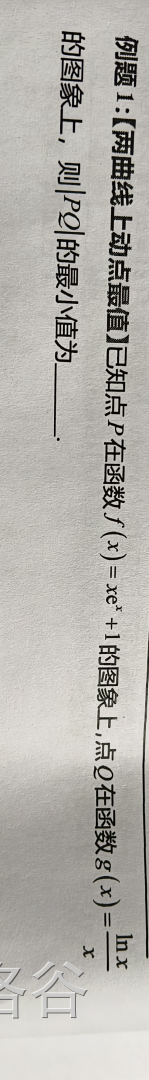 例题 1:【两曲线上动点最值】已知点 P 在函数 f(x)=xeˣ+1 的图象上,点 Q 在函数 g(x)=ln x/x
的图象上，则|PQ|的最小值为____.